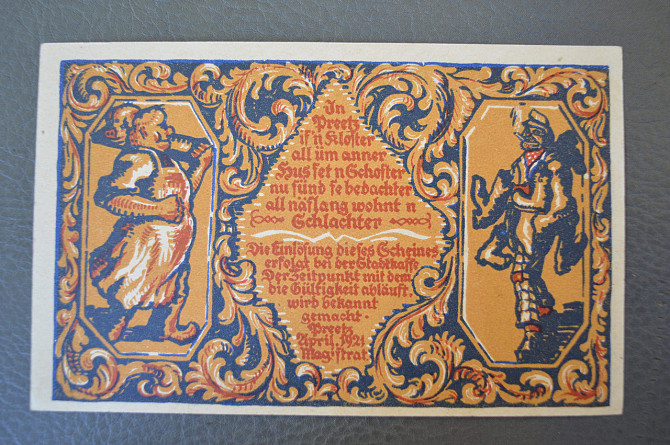 In
Preetz
is' n Kloster
all üm anner
Hus set n Schoster
nu sünd se bedachter
all näslang wohnt n
Schlachter
Die Einlösung dieses Scheines
erfolgt bei der Stadtkasse
Der Zeitpunkt mit dem
die Gültigkeit abläuft,
wird bekannt
gemacht -
Preetz
April, 1921
Magistrat